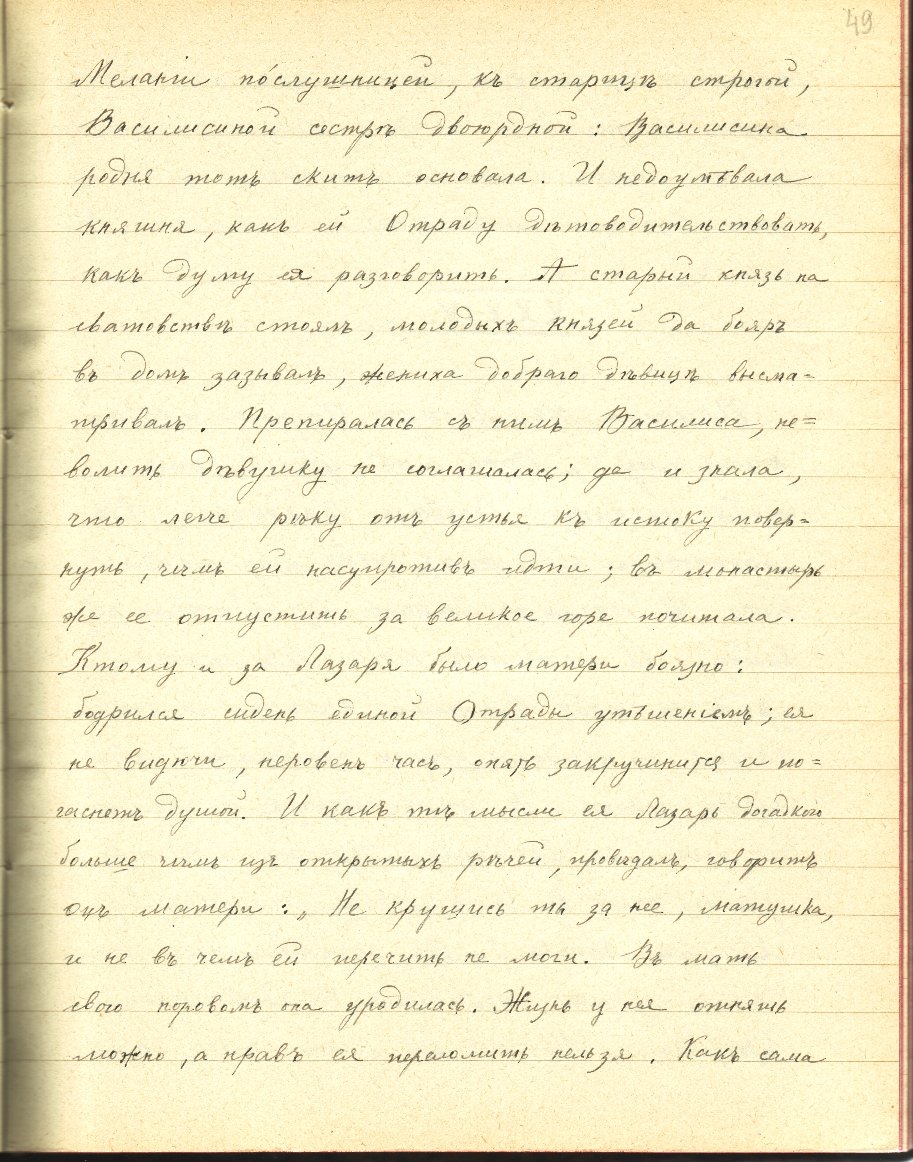 49
Меланіи по́слушницей, къ старицѣ строгой,
Василисиной сестрѣ двоюрдной: Василисина
родня тотъ скитъ основала. И недоумѣвала
княгиня, какъ ей Отраду дѣтоводительствовать,
какъ думу ея разговорить. А старый князь на
сватовствѣ стоялъ, молодыхъ князей да бояръ
въ домъ зазывалъ, жениха добраго дѣвицѣ высма=
тривалъ. Препиралась съ нимъ Василиса, не=
волить дѣвушку не соглашалась; да и знала,
что легче рѣку отъ устья къ истоку повер=
нуть, чѣмъ ей насупротивъ идти; въ монастырь
же ее отпустить за великое горе почитала.
Ктому и за Лазаря было матери боязно:
бодрился сидень единой Отрады утѣшеніемъ; ея
не видючи, неровенъ часъ, опять закручинится и по=
гаснетъ душой. И какъ тѣ мысли ея Лазарь догадкою
больше чѣмъ изъ открытыхъ рѣчей, провѣдалъ, говоритъ
онъ матери: „Не крушись ты за нее, матушка,
и не въ чемъ ей перечить не моги. Въ мать
свою норовомъ она уродилась. Жизнь у нея отнять
можно, а нравъ ея переломить нельзя. Какъ сама